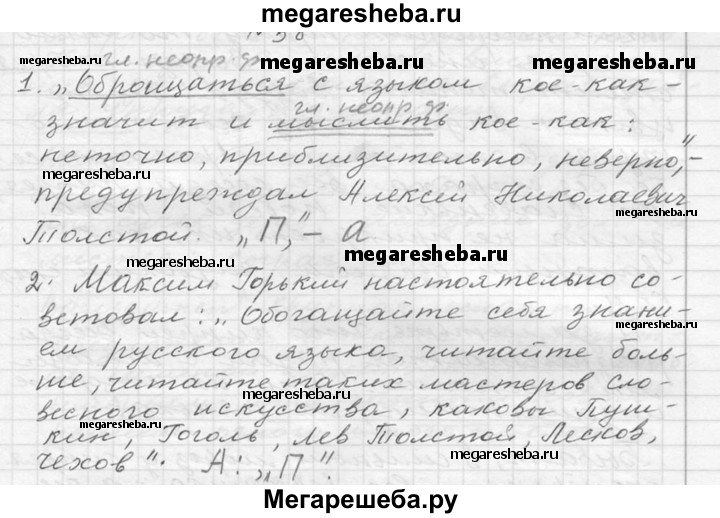 megaresheba.ru
№ 58
гл. неопр. ф.
1. „Обращаться с языком кое-как –
гл. неопр. ф.
значит и мыслить кое-как:
неточно, приблизительно, неверно", –
предупреждал Алексей Николаевич
Толстой. „П," – а
2. Максим Горький настоятельно со-
ветовал: „Обогащайте себя знани-
ем русского языка, читайте боль-
ше, читайте таких мастеров сло-
весного искусства, каковы Пуш-
кин, Гоголь, Лев Толстой, Лесков,
Чехов". А: „П".
megaresheba.ru
megaresheba.ru
megaresheba.ru
megaresheba.ru
megaresheba.ru
megaresheba.ru
megaresheba.ru
megaresheba.ru
megaresheba.ru
Мегарешеба.ру